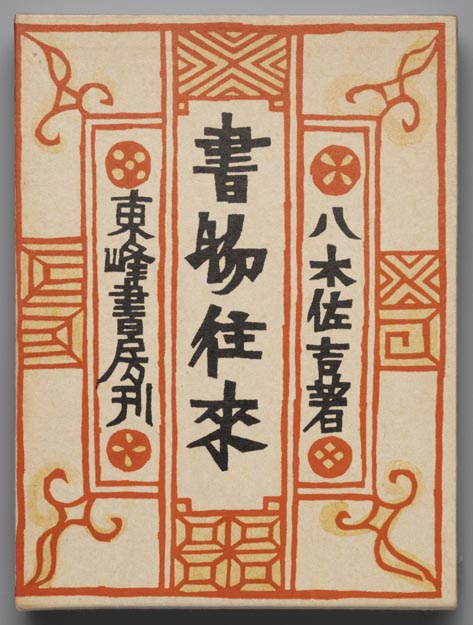 八木佐吉著
書物往来
東峰書房刊